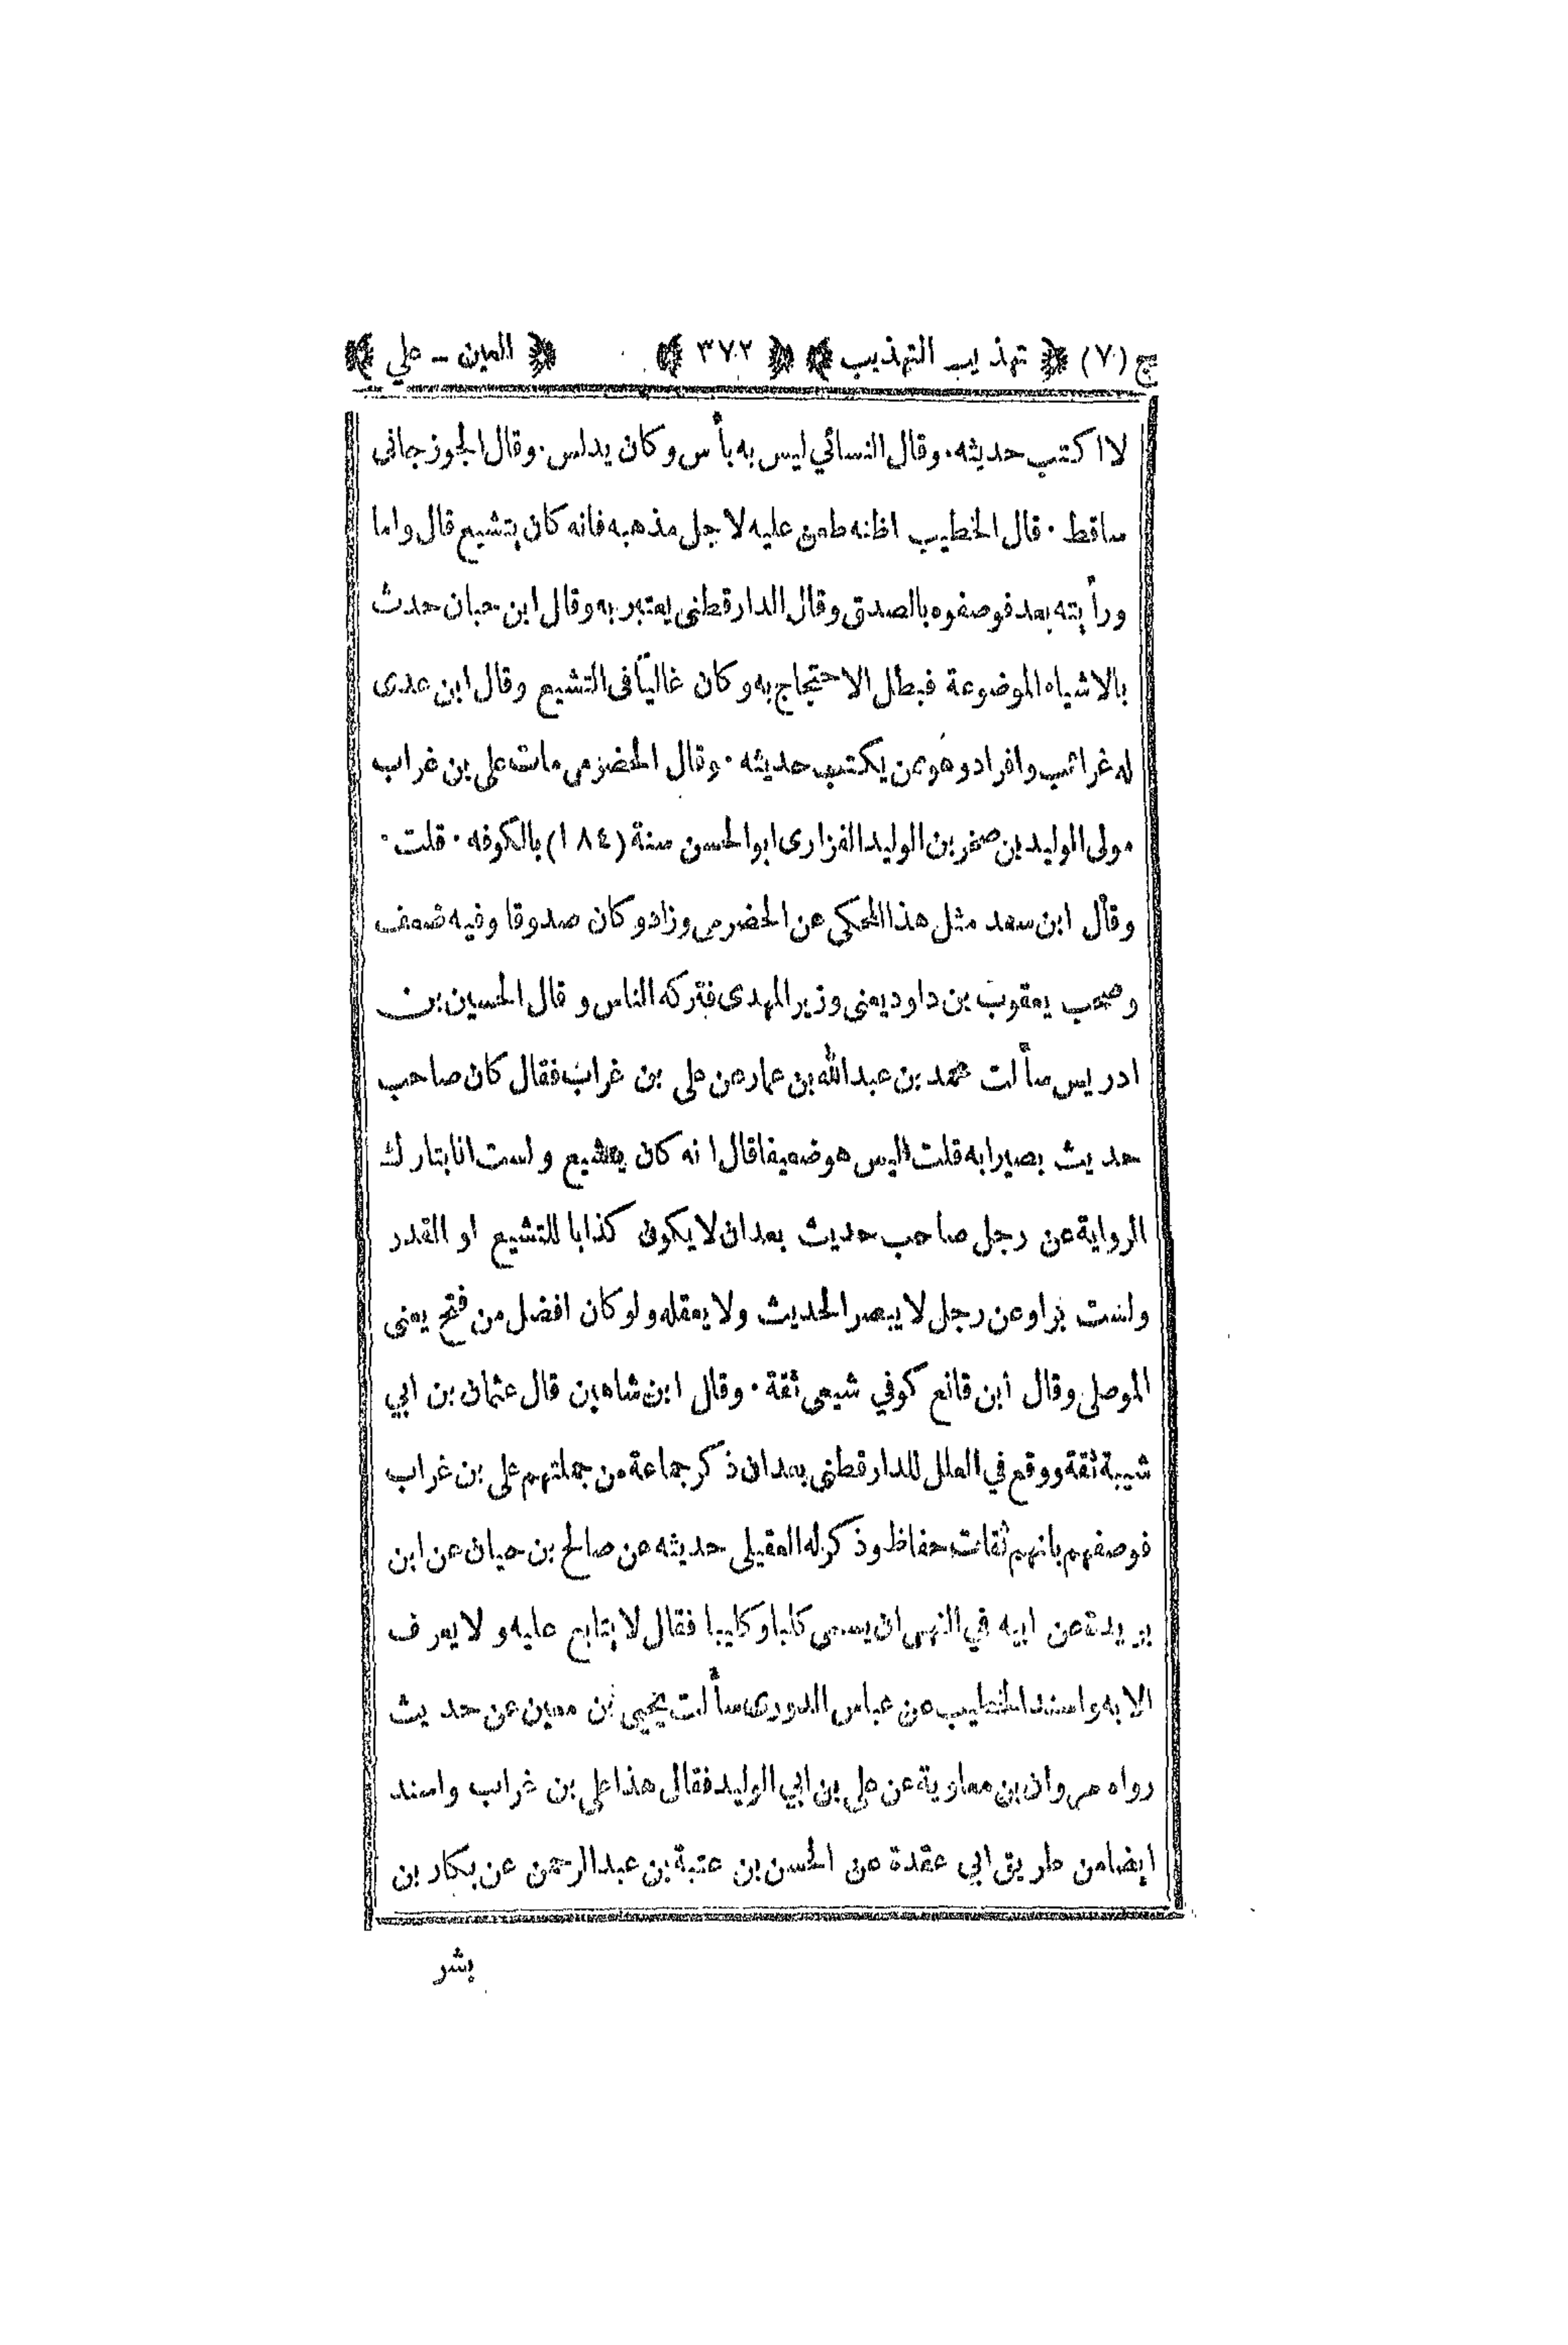 ج (٧) ﴿ تهذيب التهذيب ﴾ ﴿ ٣٧٢ ﴾ ﴿ العين - علي ﴾
لا اكتب حديثه. وقال النسائي ليس به بأس وكان يدلس. وقال الجوزجانى
ساقط. قال الخطيب اظنه طعن عليه لاجل مذهبه فانه كان يتشيع قال واما
ورأيته بعد فوصفوه بالصدق وقال الدارقطنى يعتبر به وقال ابن حبان حدث
بالاشياء الموضوعة فبطل الاحتجاج به وكان غالياً فى التشيع وقال ابن عدى
له غرائب وافراد وهو ممن يكتب حديثه. وقال الحضرمى مات على بن غراب
مولى الوليد بن صخر بن الوليد الفزارى ابو الحسن سنة (١٨٤) بالكوفه. قلت.
وقال ابن سعد مثل هذا المحكى عن الحضرمى وزاد وكان صدوقا وفيه ضعف
وصحب يعقوب بن داود يعنى وزير المهدى فتركه الناس وقال الحسين بن
ادريس سألت محمد بن عبد الله بن عمار عن على بن غراب فقال كان صاحب
حديث بصيرا به قلت اليس هو ضعيفا قال انه كان يتشيع ولست انا بتارك
الرواية عن رجل صاحب حديث بعد ان لا يكون كذابا للتشيع او القدر
ولست براو عن رجل لا يبصر الحديث ولا يعقله ولو كان افضل من فتح يعنى
الموصلى وقال ابن قانع كوفي شيعى ثقة. وقال ابن شاهين قال عثمان بن ابي
شيبة ثقة ووقع في العلل للدارقطنى بعد ان ذكر جماعة من جملتهم على بن غراب
فوصفهم بانهم ثقات حفاظ وذكر له العقيلى حديثه عن صالح بن حيان عن ابن
بريدة عن ابيه في النهى ان يسمى كلبا وكليبا فقال لا يتابع عليه ولا يعرف
الا به واسند الخطيب عن عباس الدورى سألت يحيى بن معين عن حديث
رواه مروان بن معاوية عن على بن ابي الوليد فقال هذا على بن غراب واسند
ايضا من طريق ابي عقدة عن الحسن بن عتبة بن عبد الرحمن عن بكار بن
بشر